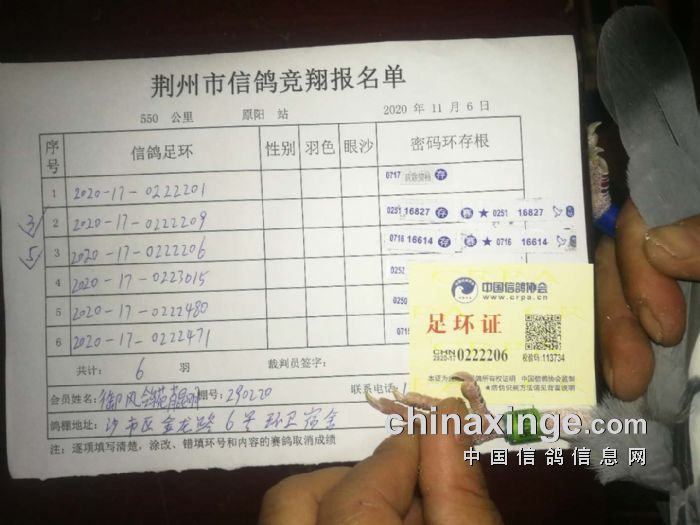 荆州市信鸽竞翔报名单
550 公里 原阳 站 2020 年 11 月 6 日
序号 信鸽足环 性别 羽色 眼沙 密码环存根
1 2020-17-0222201 0717 存
3/ 2 2020-17-0222209 0251 16827 存 赛 ★ 0251 16827
5/ 3 2020-17-0222206 0716 16614 存 赛 ★ 0716 16614
4 2020-17-0223015 0252
5 2020-17-0222480 0251
6 2020-17-0222471 0715
共计: 6 羽 裁判员签字:
会员姓名: 御风鸽苑 棚号: 290220 联系电话: 1
鸽棚地址: 沙市区金龙路6号环卫宿舍
注: 逐项填写清楚, 涂改、错填环号和内容的赛鸽取消成绩
中国信鸽协会
www.crpa.cn
足环证
CHN 2020-17 0222206
校验码:113734
本证为 鸽所有权证明 中国信鸽协会监制
★防伪识别方法请见背面说明
chinaxinge.com
中国信鸽信息网